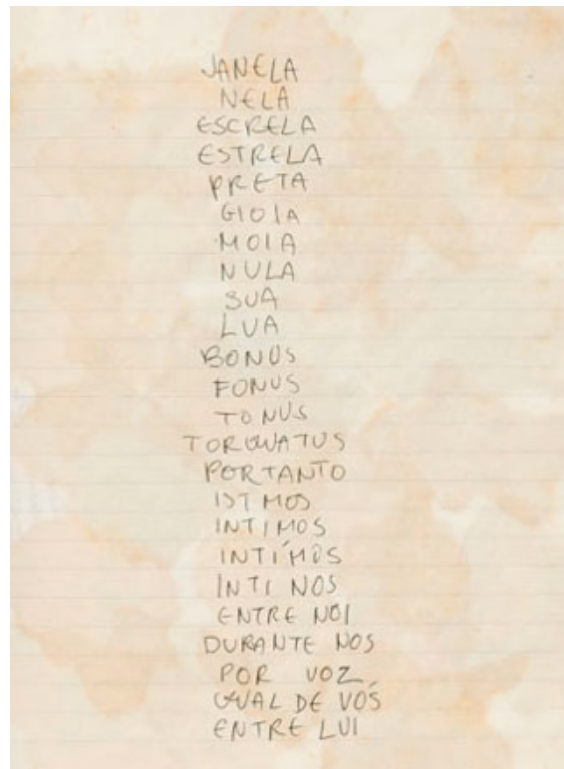 JANELA
NELA
ESCRELA
ESTRELA
PRETA
GIOIA
MOIA
NULA
SUA
LUA
BONUS
FONUS
TONUS
TORQUATUS
PORTANTO
ISTMOS
INTIMOS
INTÍMOS
INTI NOS
ENTRE NOI
DURANTE NOS
POR VOZ
QUAL DE VÓS
ENTRE LUI